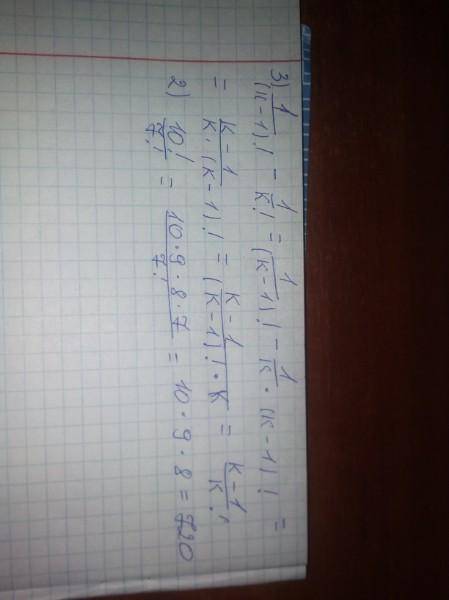 3) 1/(k-1)! - 1/k! = 1/(k-1)! - 1/k·(k-1)! =
= k-1/k·(k-1)! = k-1/(k-1)!·k = k-1/k!
2) 10!/7! = 10·9·8·7/7! = 10·9·8=720